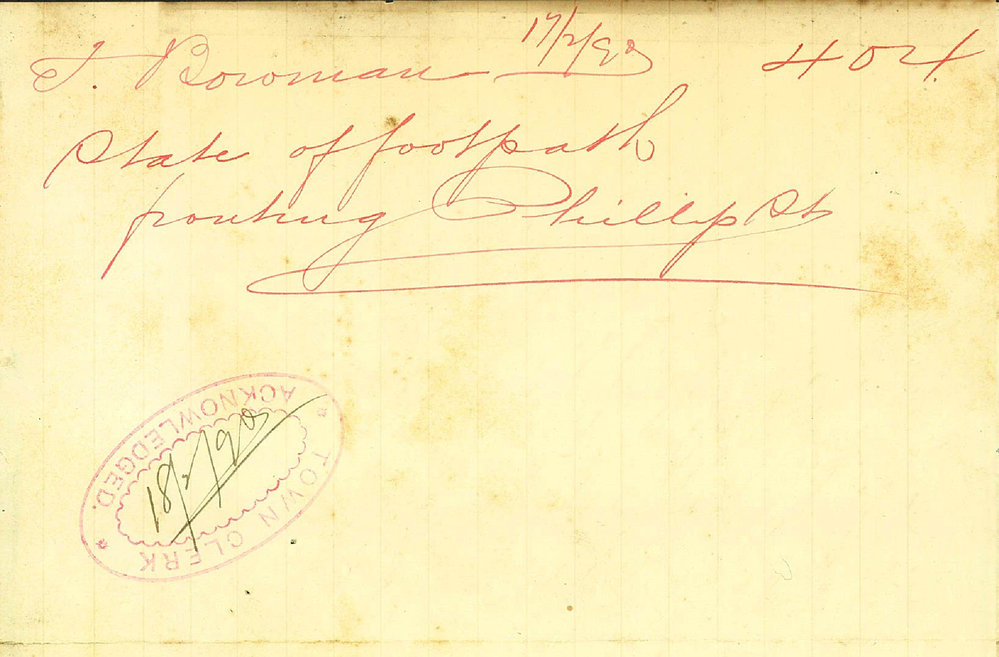 T. Bowman 17/2/98 404
State of footpath
fronting Phillip St
TOWN CLERK
ACKNOWLEDGED.
18/2/98